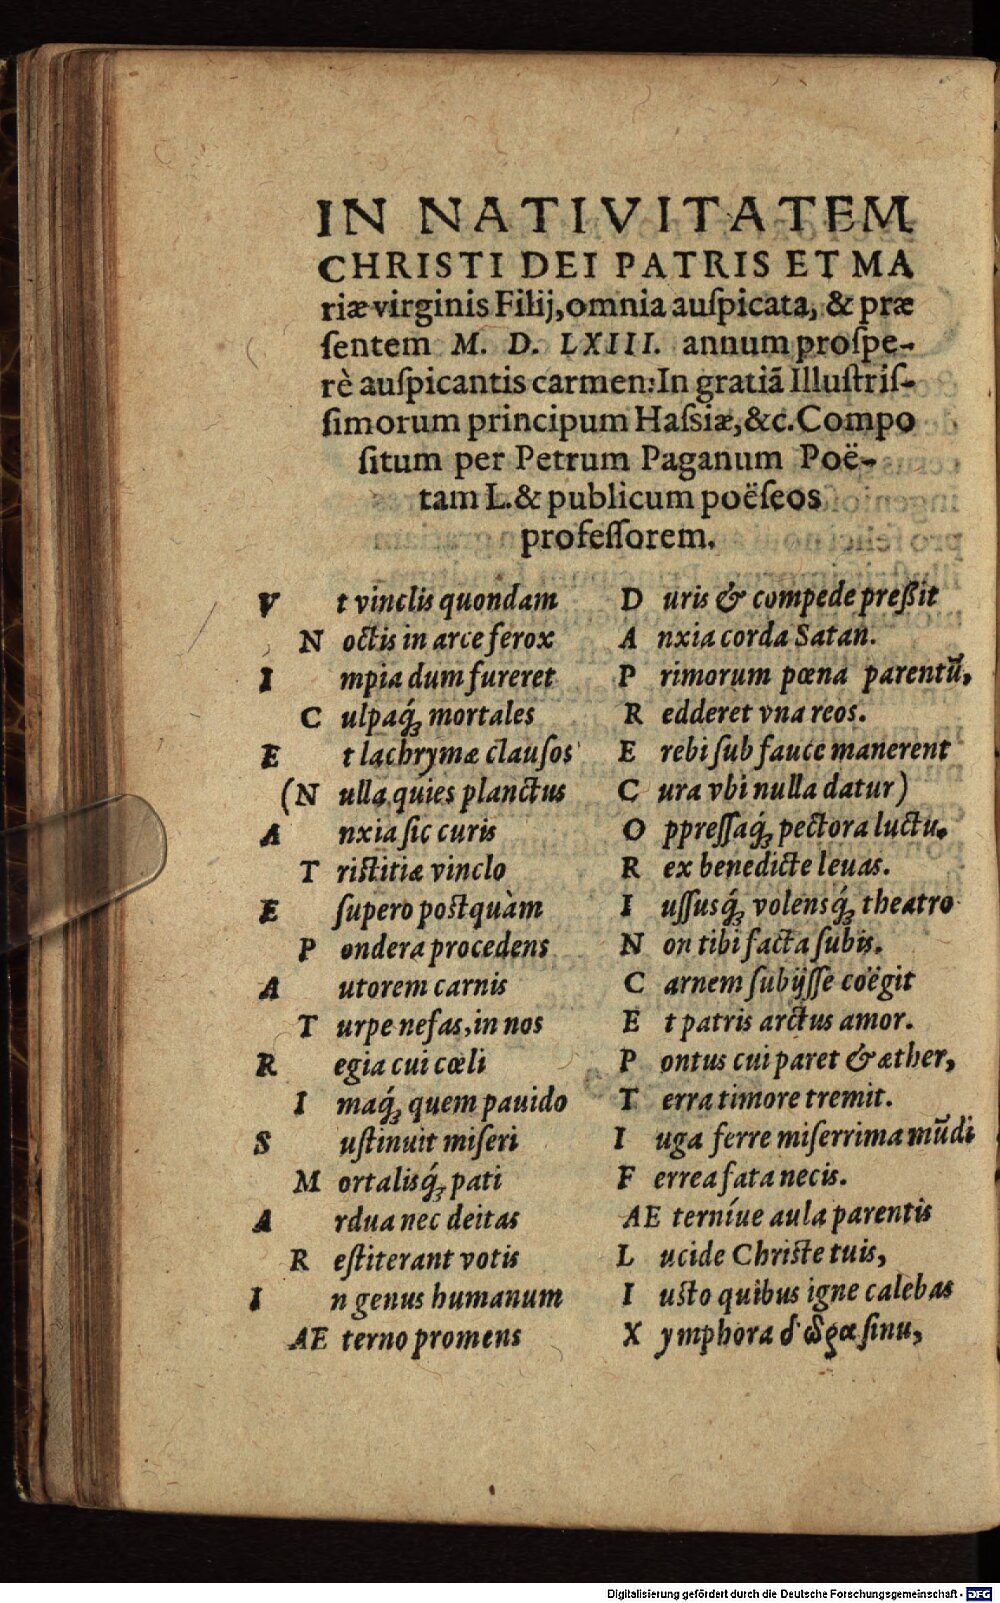 IN NATIVITATEM
CHRISTI DEI PATRIS ET MA
riæ virginis Filij, omnia auſpicata, & præ
ſentem M. D. LXIII. annum proſpe-
rè auſpicantis carmen: In gratiã Illuſtriſ-
ſimorum principum Haſsiæ, &c. Compo
ſitum per Petrum Paganum Poë-
tam L. & publicum poëſeos
profeſſorem.
V t vinclis quondam D uris & compede preßit
N octis in arce ferox A nxia corda Satan.
I mpia dum fureret P rimorum pœna parentũ,
C ulpaq́ꝫ mortales R edderet vna reos.
E t lachrymæ clauſos E rebi ſub fauce manerent
(N ulla quies planctus C ura vbi nulla datur)
A nxia ſic curis O ppreſſaq́ꝫ pectora luctu.
T riſtitiæ vinclo R ex benedicte leuas.
E ſupero poſtquàm I uſſusq́ꝫ volensq́ꝫ theatro
P ondera procedens N on tibi facta ſubis.
A utorem carnis C arnem ſubijſſe coëgit
T urpe nefas, in nos E t patris arctus amor.
R egia cui cœli P ontus cui paret & æther,
I maq́ꝫ quem pauido T erra timore tremit.
S uſtinuit miſeri I uga ferre miſerrima mũdi
M ortalisq́ꝫ pati F errea fata necis.
A rdua nec deitas AE terníue aula parentis
R eſtiterant votis L ucide Chriſte tuis,
I n genus humanum I uſto quibus igne calebas
AE terno promens X ymphora ſinu,